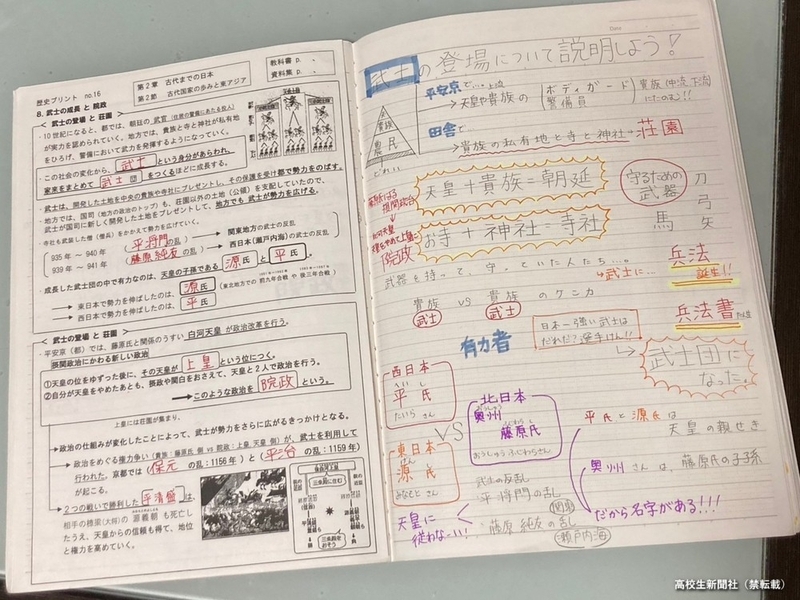 歴史プリント no.16
第2章 古代までの日本
第2節 古代国家の歩みと東アジア
教科書 p.
資料集 p.
8. 武士の成長 と 院政
< 武士の登場 と 荘園 >
・10世紀になると、都では、朝廷の武官
が実力を認められていく。地方では、貴族と寺と神社が私有地
をひろげ、警備において武力を発揮するようになっていく。
・この社会の変化から、武士 という身分があらわれ、
家来をまとめて 武士 団 をつくるほどに成長する。
・武士は、開発した土地を中央の貴族や寺社にプレゼントし、その保護を受け都で勢力をのばす。
・地方では、国司(地方の政治のトップ)も、荘園以外の土地(公領)を支配していたので、
武士が国司に新しく開発した土地をプレゼントして、地方でも武士が勢力を広げる。
寺社も武装した僧(僧兵)をかかえて勢力を広げていく。
935年 ~ 940年 (平将門の乱) 関東地方の武士の反乱
939年 ~ 941年 (藤原純友の乱) 西日本(瀬戸内海)の武士の反乱
・成長した武士団の中で有力なのは、天皇の子孫である 源 氏 と 平 氏。
→ 東日本で勢力を伸ばしたのは、 源 氏 (東北地方での 前九年合戦 や 後三年合戦)
→ 西日本で勢力を伸ばしたのは、 平 氏
< 武士の登場 と 荘園 >
・平安京(都)では、藤原氏と関係のうすい 白河天皇 が政治改革を行う。
摂関政治にかわる新しい政治
①天皇の位をゆずった後に、その天皇が 上皇 という位につく。
②自分が天皇をやめたあとも、摂政や関白をおさえて、天皇と2人で政治を行う。
→このような政治を 院政 という。
上皇には荘園が集まり、
→政治の仕組みが変化したことによって、武士が勢力をさらに広げるきっかけとなる。
→政治をめぐる権力争い(貴族:藤原氏 側 vs 院政:上皇 天皇 側)が、武士を利用して
行われた。京都では(保元 の乱:1156年)と(平治 の乱:1159年)
が起こる。
→2つの戦いで勝利した 平清盛 は、
相手の棟梁(大将)の 源義朝 も死亡し
たうえ、天皇からの信頼も得て、地位
と権力を高めていく。
武士の登場について説明しよう!
貴族
農民
どれい
平安京で
→天皇や貴族の ボディガード
警備員
田舎で
→貴族の私有地と寺と神社→荘園
天皇+貴族=朝廷
お寺+神社=寺社
院政
守るための
武器
刀
弓
矢
馬
武器を持って、守っていた人たち…。
→武士に…
兵法
誕生!!
貴族 VS 貴族 のケンカ
武士 武士
兵法書
有力者
日本一強い武士は
だれだ?選手けん!!
→武士団に
なった。
西日本
へいし
平氏
たいらさん
VS
東日本
げんし
源氏
みなもとさん
北日本
おうしゅう ふじわら
奥州
藤原氏
おうしゅうふじわらさん
平氏と源氏は
天皇の親せき
奥州さんは、藤原氏の子孫
だから名字がある!!!
武士の反乱
・平将門の乱
関東
・藤原純友の乱
瀬戸内海
天皇に
従わな~い!
高校生新聞社（禁転載）